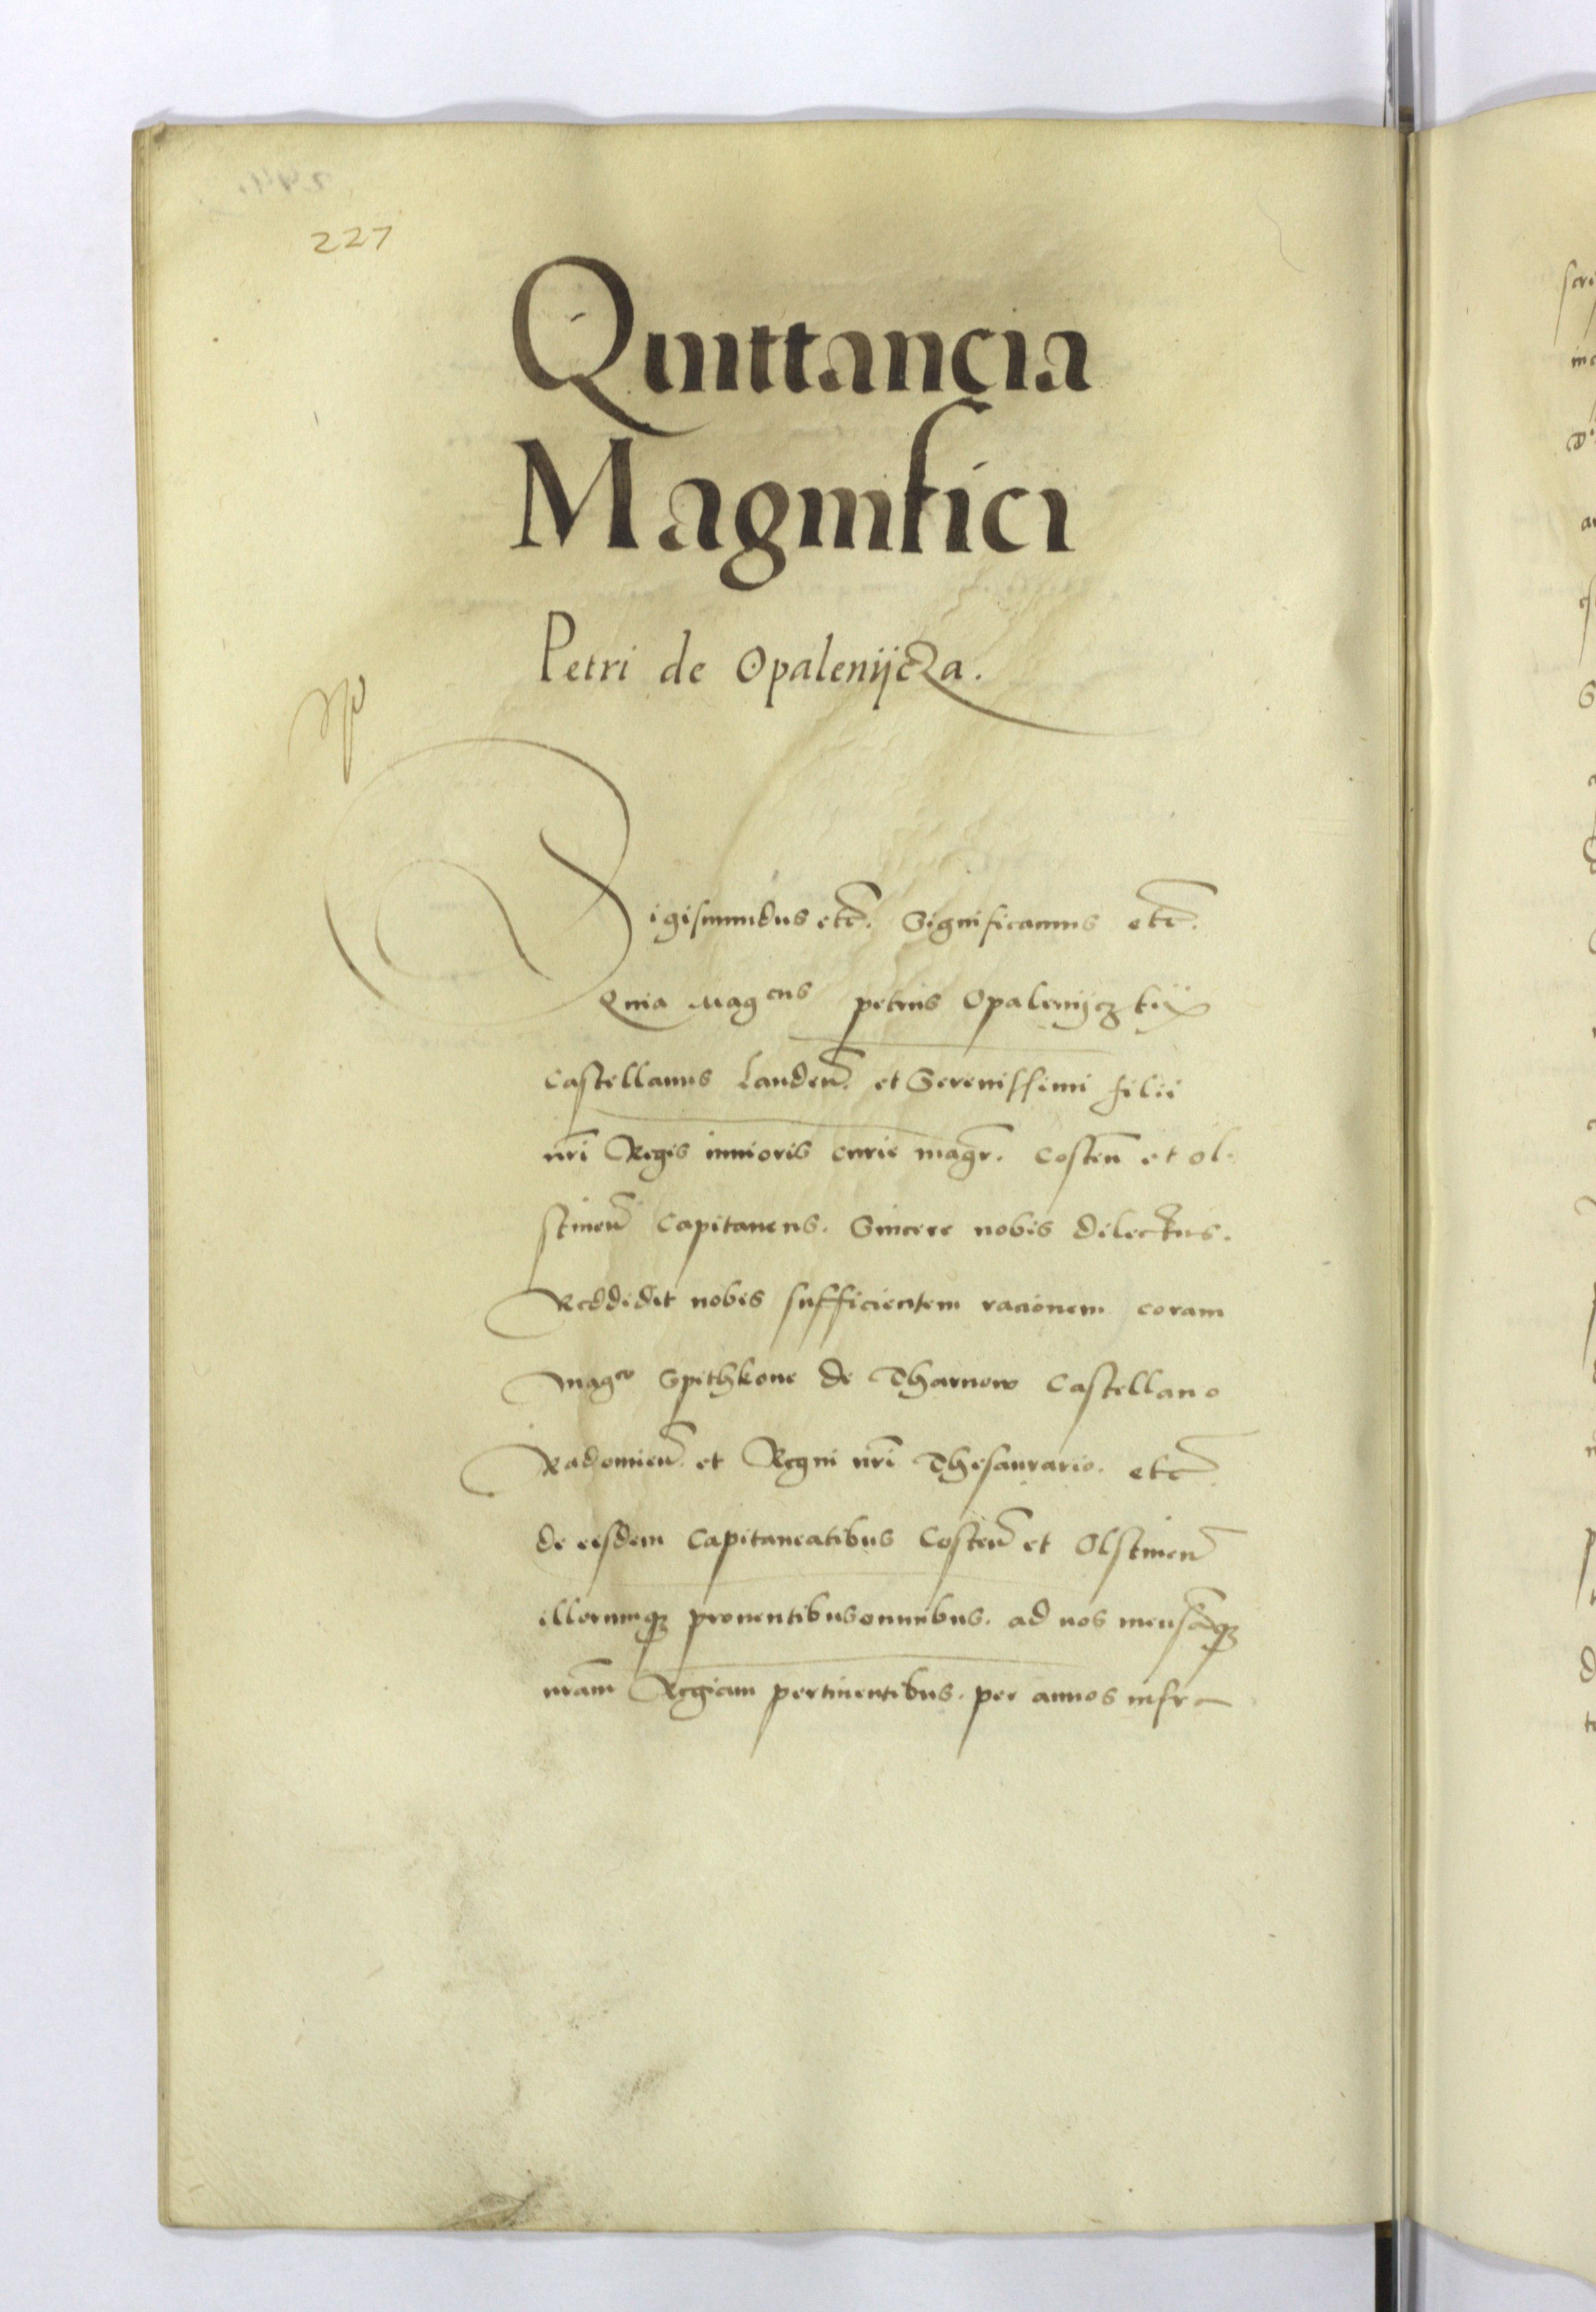 227
Quittancia
Magnifici
Petri de Opalenijcza.
Sigismundus etc. Significamus etc.
Quia Mag cus petrus Opalenijczkij
Castellanus Landen. et Serenissimi filii
nri Regis iunioris curie magr. Costen et Ol-
stinen Capitaneus. Sincere nobis dilectus.
Reddidit nobis sufficientem racionem coram
Mag co Spithkone de Tharnow Castellano
Radomien. et Regni nri Thesaurario. etc
de eisdem Capitaneatibus Costen et Olstinen
illorumq3 proventibus omnibus. ad nos mensaq3
nram Regiam pertinentibus. per annos infra